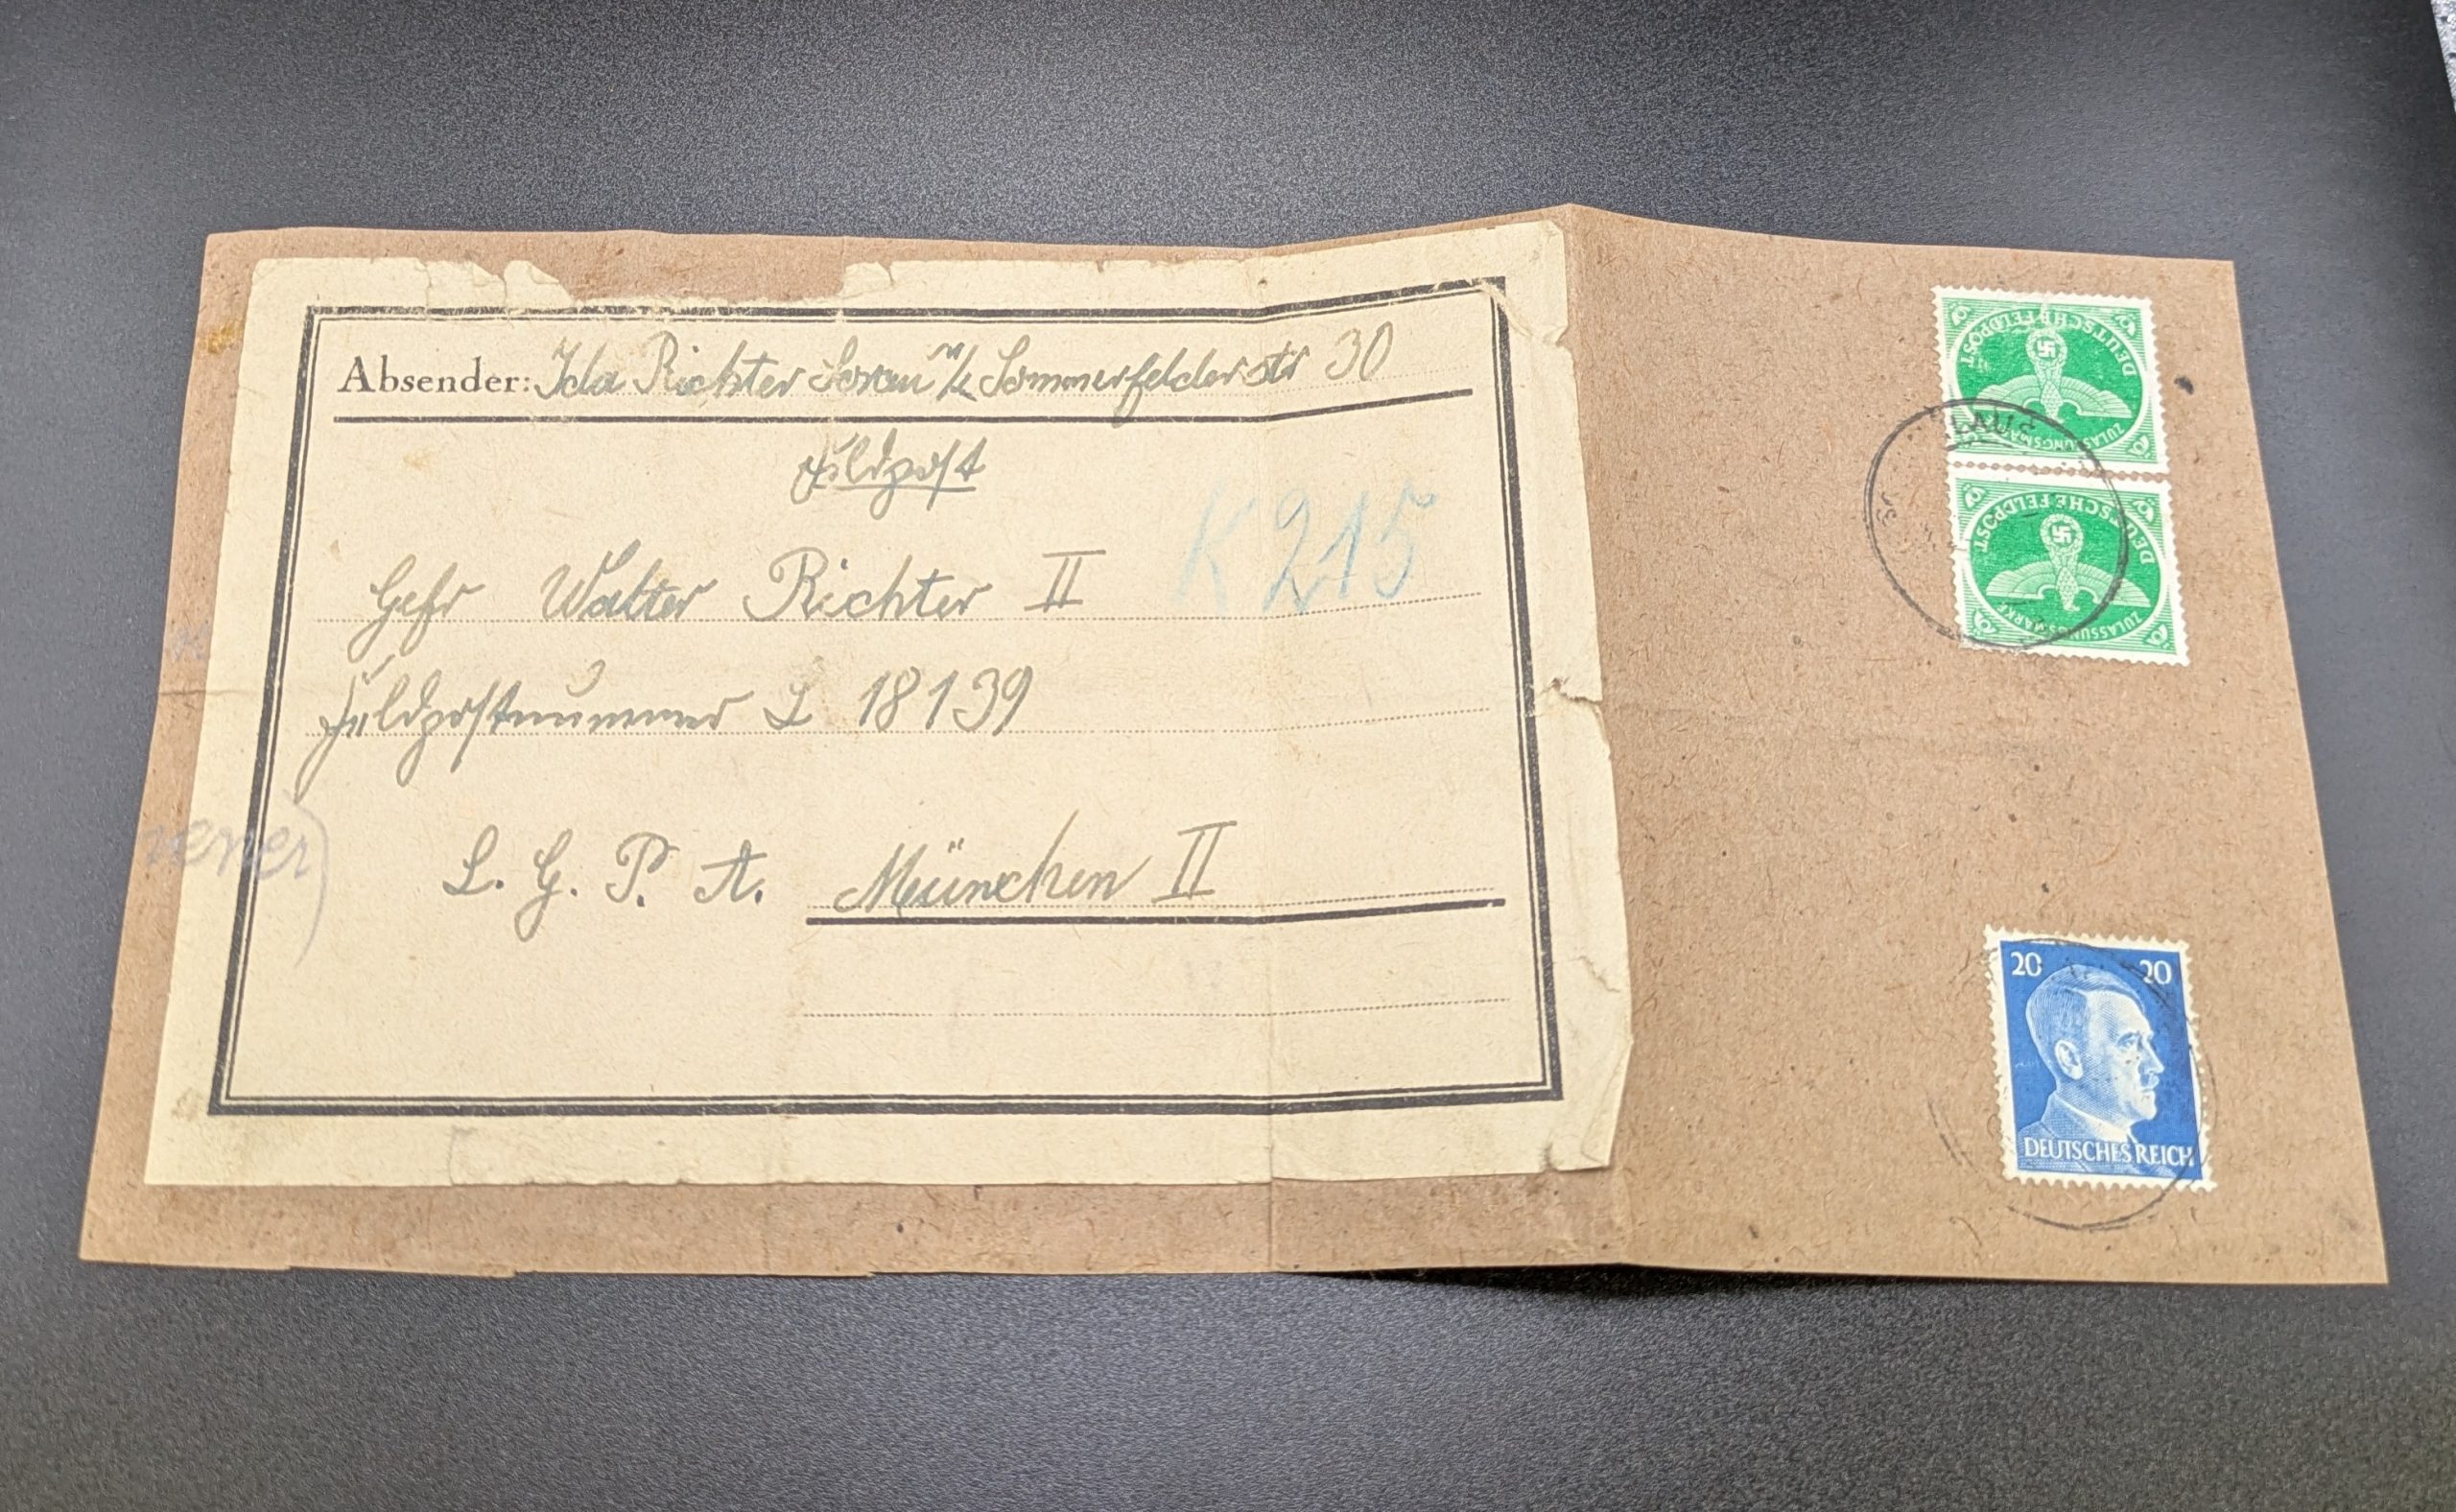 Absender: Ida Richter Sorau N/L Sommerfelderstr 30
Feldpost
K 215
Gefr Walter Richter II
Feldpostnummer L 18139
L. G. P. A. München II
DEUTSCHE FELDPOST
ZULASSUNGSMARKE
DEUTSCHE FELDPOST
ZULASSUNGSMARKE
20 20
DEUTSCHES REICH